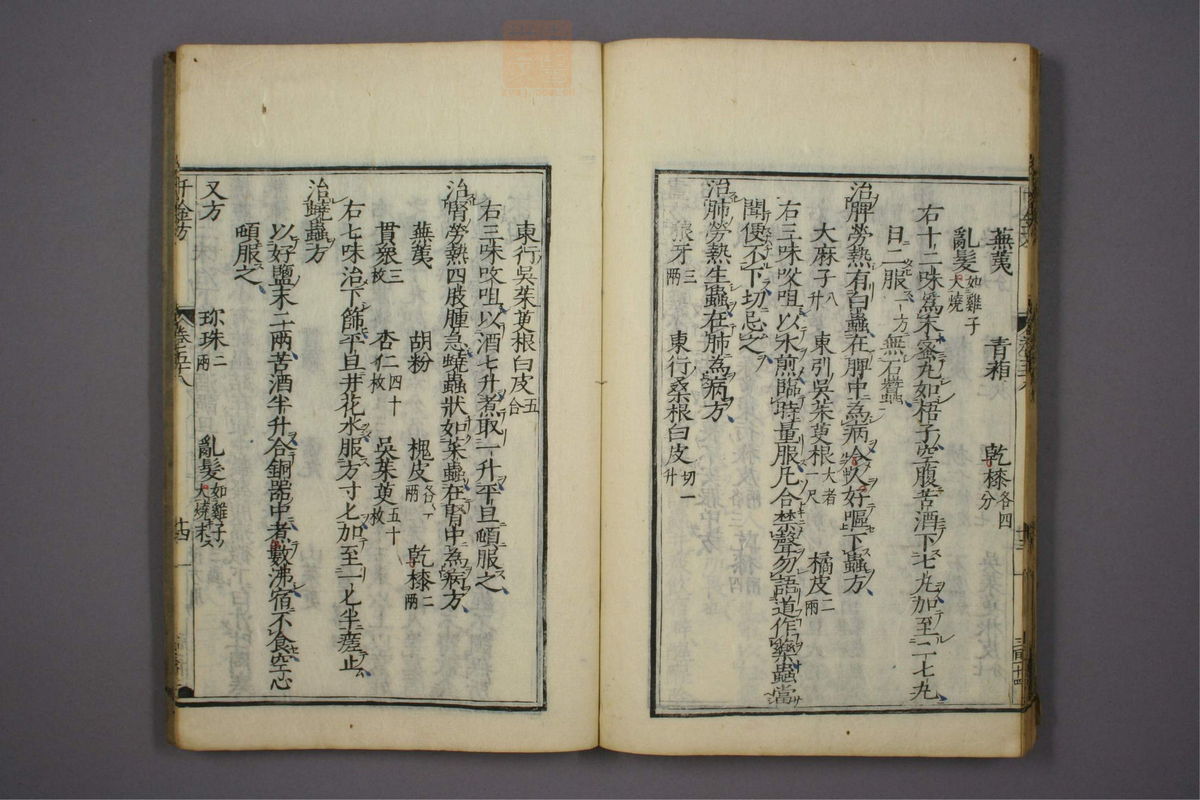 蕪荑 青葙 乾𣾰各四分
亂髮如雞子大燒
右十二味爲末蜜丸如梧子空腹苦酒下七丸加至二七丸
日二服一方無石蠶
治脾勞熱有白蟲在脾中爲病令人好嘔下蟲方
大麻子八升 東引吳茱萸根大者一尺 橘皮二兩
右三味㕮咀以水煎臨時量服凡合禁聲勿語道作藥蟲當
聞便不下切忌之
治肺勞熱生蟲在肺為病方
狼牙三兩 東行桑根白皮切一升
東行吳茱萸根白皮五合
右三味㕮咀以酒七升煮取一升平旦頓服之
治腎勞熱四肢腫急蟯蟲狀如菜蟲在腎中為病方
蕪荑 胡粉 槐皮各一兩 乾𣾰二兩
貫衆三枚 杏仁四十枚 吳茱萸五十枚
右七味治下篩平旦井花水服方寸匕加至一匕半瘥止
治蟯蟲方
以好鹽末二兩苦酒半升合銅器中煮數沸宿不食空心
頓服之
又方 珎珠二兩 亂髮如雞子大燒末
千金方 卷五十八 十四